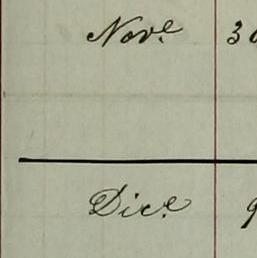 Nov.e 30
Dic.e 9